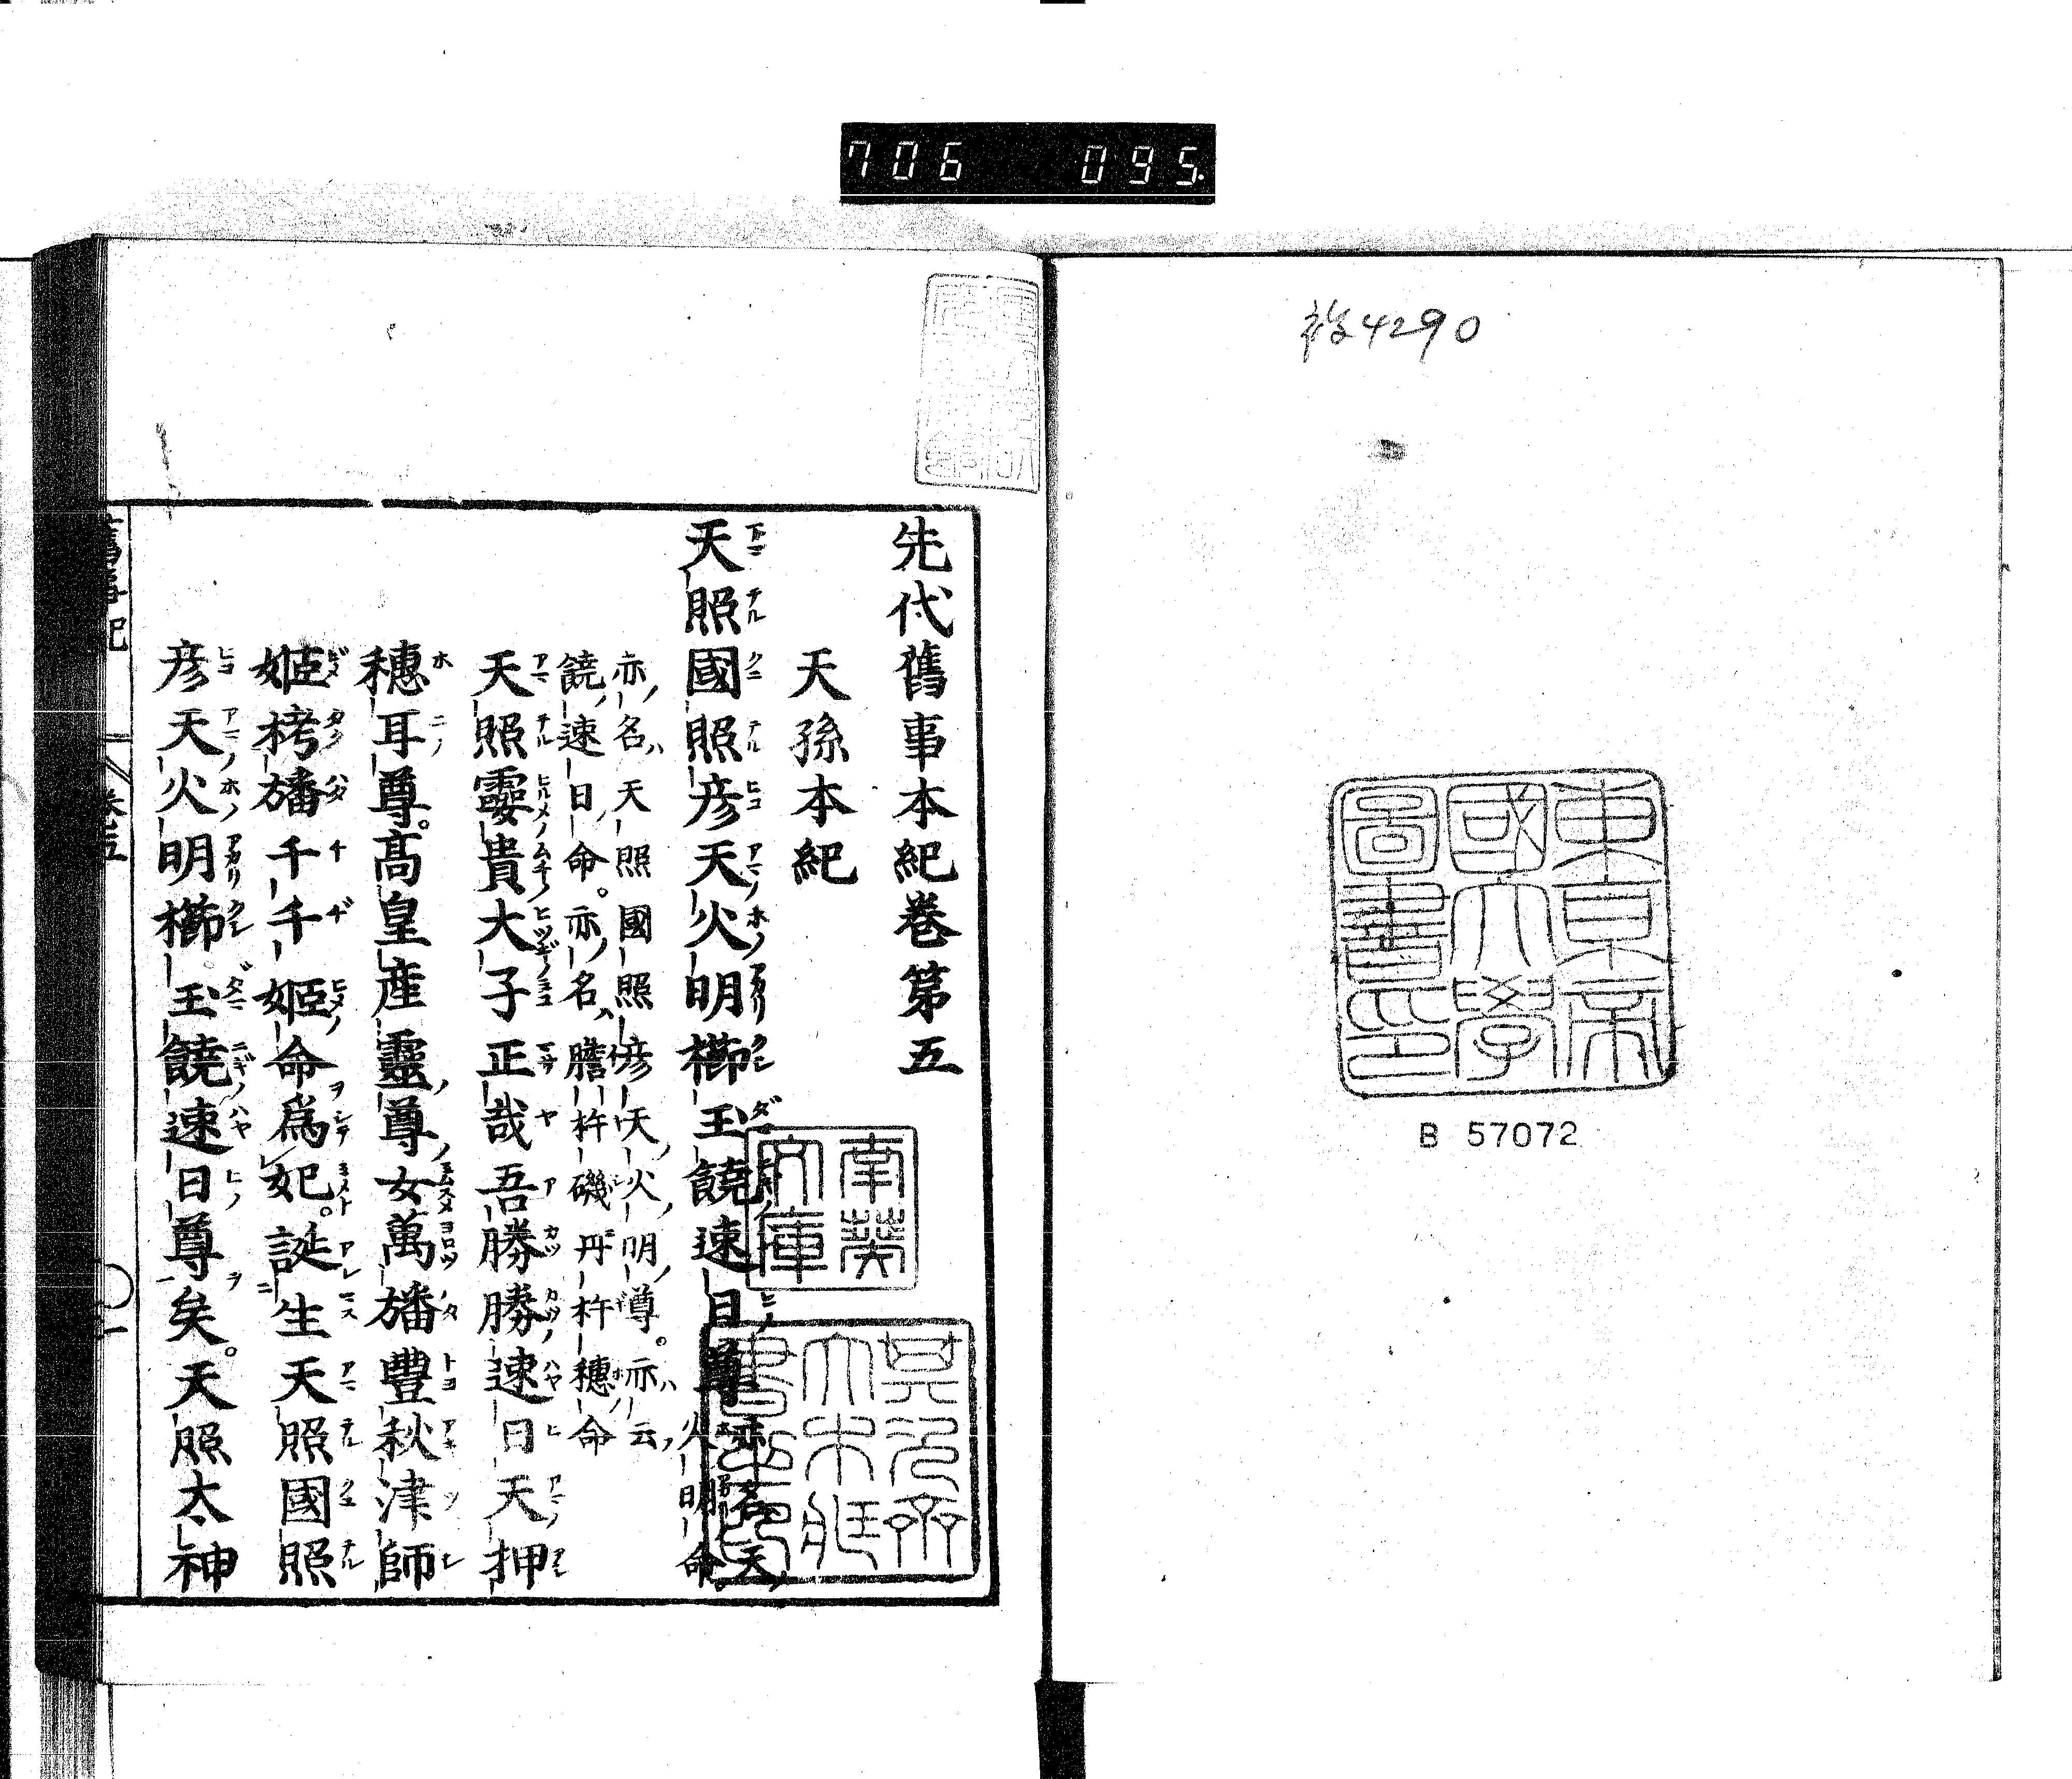 706 095
部4290
東京帝
國大學
圖書印
B 57072
先代舊事本紀巻第五
天孫本紀
南葵
文庫
天照國照彦天火明櫛玉饒速日尊亦名天
火明命
亦名天照國照彦天火明尊亦云
饒速日命亦名膽杵磯丹杵穗命
天照孁貴大子正哉吾勝勝速日天押
穗耳尊高皇産靈尊女萬旙豐秋津師
姬栲旙千千姬命爲妃誕生天照國照
彦天火明櫛玉饒速日尊矣天照太神
舊事紀
卷五
一